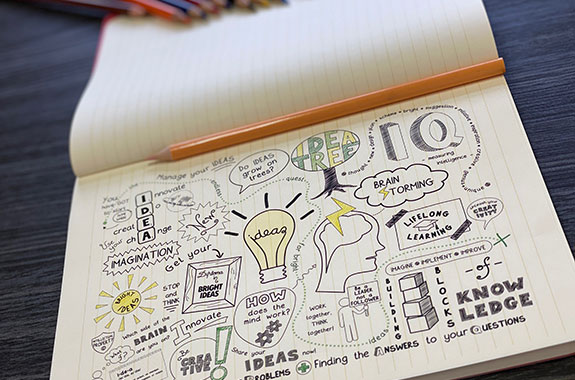 Manage your IDEAS
Do IDEAS
grow on
trees?
IDEA
TREE
IQ
measuring
intelligence
quest
BRAIN
STORMING
LIFELONG
LEARNING
innovate
creat
IDEA
change
IMAGINATION
Get your
Diploma in
BRIGHT
IDEAS
idea
BRIGHT
IDEAS
STOP
and
THINK
Innovate
HOW
does the
mind work?
WORK
together
THINK
together!
Be
LEADER
not a
FOLLOWER
IMAGINE • IMPLEMENT • IMPROVE
BUILDING
BLOCKS
-of-
KNOW
LEDGE
Which side of the
BRAIN
are you on?
Be
CREATIVE
Share your
IDEAS now!
PROBLEMS
Finding the ANSWERS to your QUESTIONS